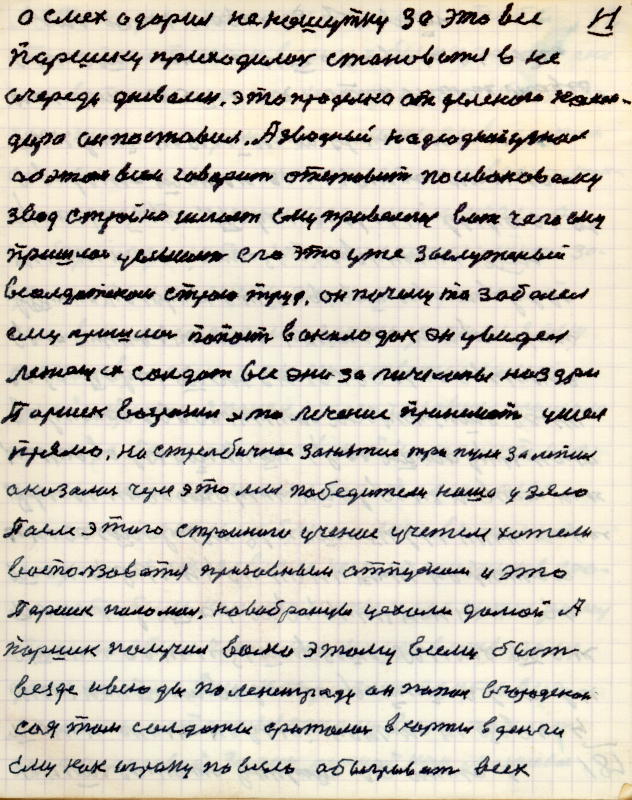 о смех одорил не на шутку за это все И
Паршику приходилос становотя в не
очередь дневален, это проделка отделеного коман-
дира он поставил. А взводный
обэтом всем говорит отставит
звод стройно шагает ему привелося вот чего ему
пришлос услышат его это уже заслуженый
всолдатском строю труд, он почему то заболел
ему пришлос попост в околодок он увидел
лежащих солдат все они за
Паршек возразил это лечение принимат ушел
прямо, на стрелбичное занятие три пули залепил
оказалос чере это мы победители наша узяло
После этого строиного учение хотели
воспользоватя призовным отпуском и это
Паршик поломал, новобранцы уехали домой А
Паршик получил волю этому всему быт
везде и всюды по ленинграду он попал в городской
сад там солдаты сротолис в карты в денги
ему как игроку повезло обыгриват всех